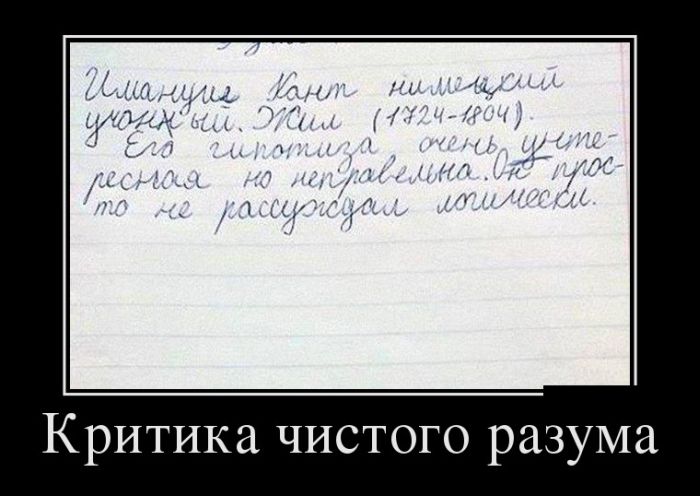 Имануил Кант нимецкий
учонный. Жил (1724-1804).
Его гипотиза очень унте-
ресная но неправельна. Он прос-
то не рассуждал логически.
Критика чистого разума